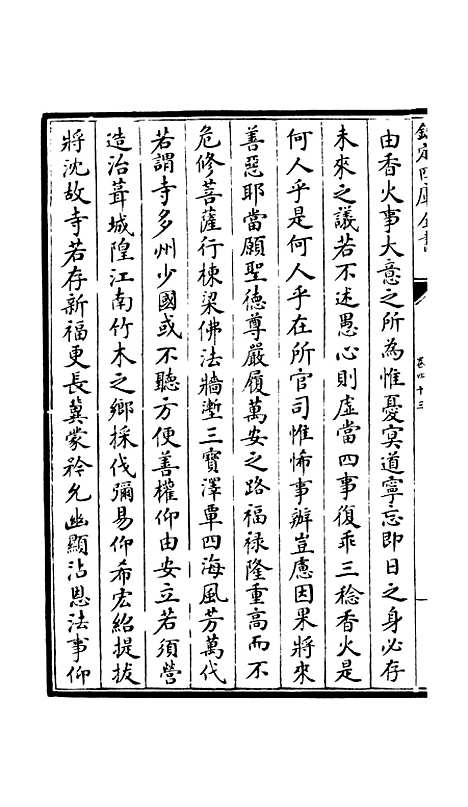 欽定四庫全書
卷四十三
由香火事大意之所為惟憂冥道寧忘即日之身必存
未來之議若不述愚心則虛當四事復乖三稔香火是
何人乎是何人乎在所官司惟怖事辦豈慮因果將來
善惡耶當願聖德尊嚴履萬安之路福祿隆重高而不
危修菩薩行棟梁佛法牆塹三寶澤覃四海風芳萬代
若謂寺多州少國或不聽方便善權仰由安立若須營
造治葺城隍江南竹木之鄉採伐彌易仰希宏紹提拔
將沈故寺若存新福更長冀蒙矜允幽顯沾恩法事仰